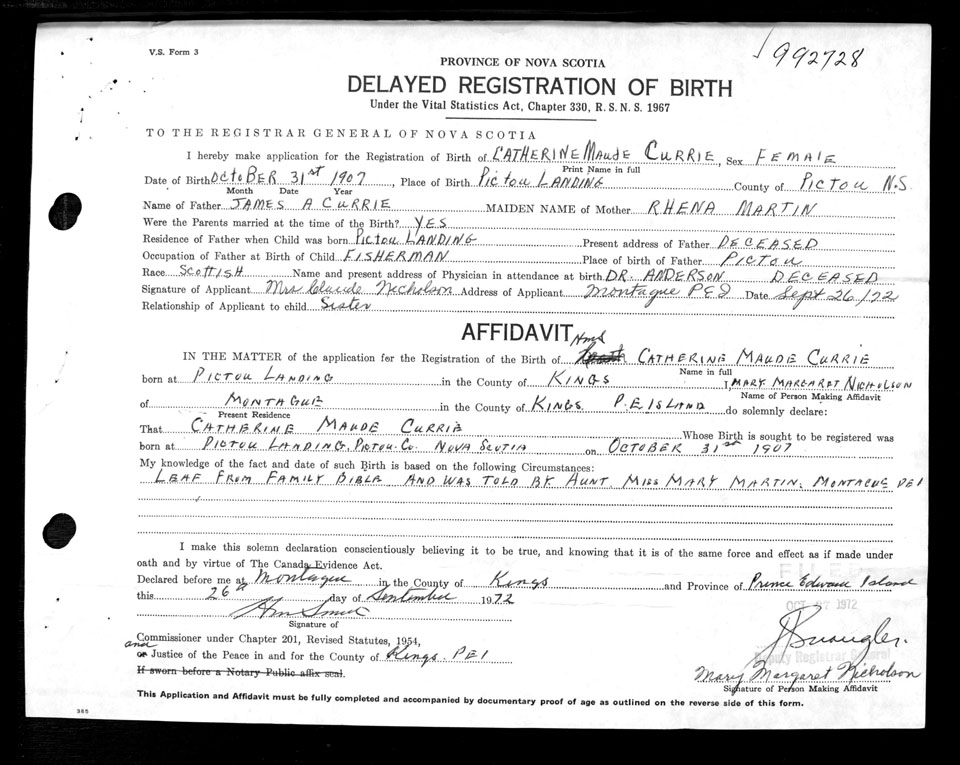 V.S. Form 3
992728
PROVINCE OF NOVA SCOTIA
DELAYED REGISTRATION OF BIRTH
Under the Vital Statistics Act, Chapter 330, R.S.N.S. 1967
TO THE REGISTRAR GENERAL OF NOVA SCOTIA
I hereby make application for the Registration of Birth of CATHERINE MAUDE CURRIE, Sex FEMALE
Print Name in full
Date of Birth OCTOBER 31st 1907, Place of Birth PICTOU LANDING County of PICTOU N.S.
Month Date Year
Name of Father JAMES A CURRIE MAIDEN NAME of Mother RHENA MARTIN
Were the Parents married at the time of the Birth? YES
Residence of Father when Child was born PICTOU LANDING Present address of Father DECEASED
Occupation of Father at Birth of Child FISHERMAN Place of birth of Father PICTOU
Race SCOTTISH Name and present address of Physician in attendance at birth DR. ANDERSON DECEASED
Signature of Applicant Mrs Claude Nicholson Address of Applicant Montague PEI Date Sept 26/72
Relationship of Applicant to child Sister
AFFIDAVIT
IN THE MATTER of the application for the Registration of the Birth of CATHERINE MAUDE CURRIE
Name in full
born at PICTOU LANDING in the County of KINGS I, MARY MARGARET NICHOLSON
Name of Person Making Affidavit
of MONTAGUE in the County of KINGS P.E ISLAND do solemnly declare:
Present Residence
That CATHERINE MAUDE CURRIE Whose Birth is sought to be registered was
born at PICTOU LANDING PICTOU Co. NOVA SCOTIA on OCTOBER 31st 1907
My knowledge of the fact and date of such Birth is based on the following Circumstances:
LEAF FROM FAMILY BIBLE AND WAS TOLD BY AUNT. MISS MARY MARTIN. MONTAGUE PEI
I make this solemn declaration conscientiously believing it to be true, and knowing that it is of the same force and effect as if made under
oath and by virtue of The Canada Evidence Act.
Declared before me at Montague in the County of Kings and Province of Prince Edward Island
FILED
this 26th day of September 1972
OCT 27 1972
Signature of
Commissioner under Chapter 201, Revised Statutes, 1954,
and
or Justice of the Peace in and for the County of Kings. PEI
Deputy Registrar General
If sworn before a Notary Public affix seal.
Mary Margaret Nicholson
Signature of Person Making Affidavit
This Application and Affidavit must be fully completed and accompanied by documentary proof of age as outlined on the reverse side of this form.
365